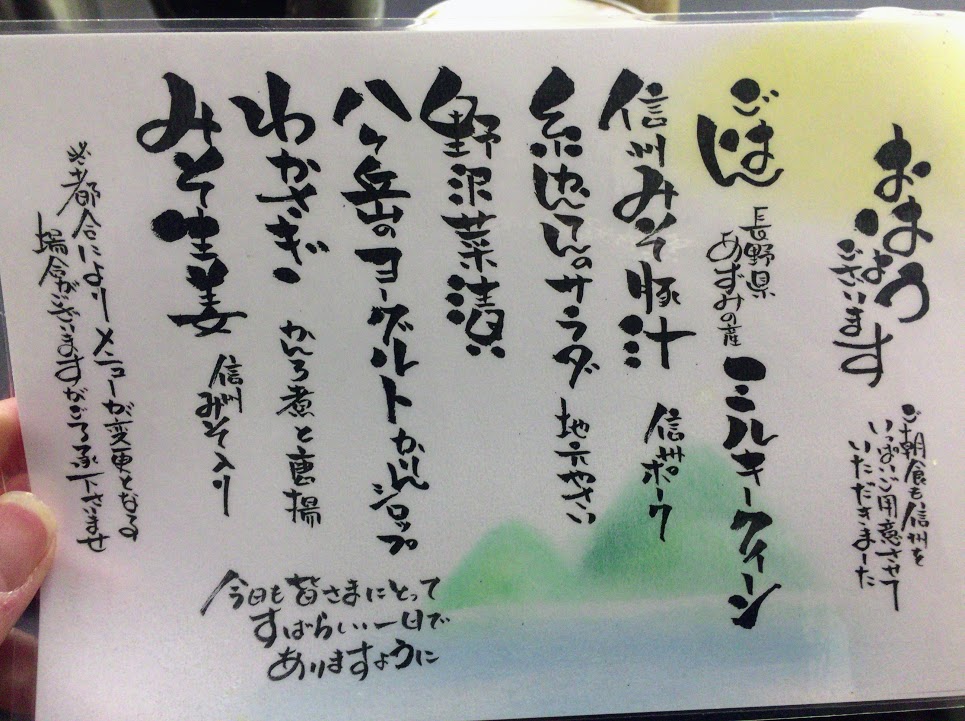 おはよう
ございます
ご朝食も信州を
いっぱいご用意させて
いただきました
ごはん 長野県
あずみの産 ミルキークイーン
信州みそ豚汁 信州ポーク
糸かんてんのサラダ 地元やさい
野沢菜漬
八ヶ岳山のヨーグルト かりんシロップ
わかさぎ かんろ煮と唐揚
みそ生姜 信州みそ入り
※都合により メニューが変更となる
場合がございますがご了承下さいませ
今日も皆さまにとって
すばらしい一日で
ありますように